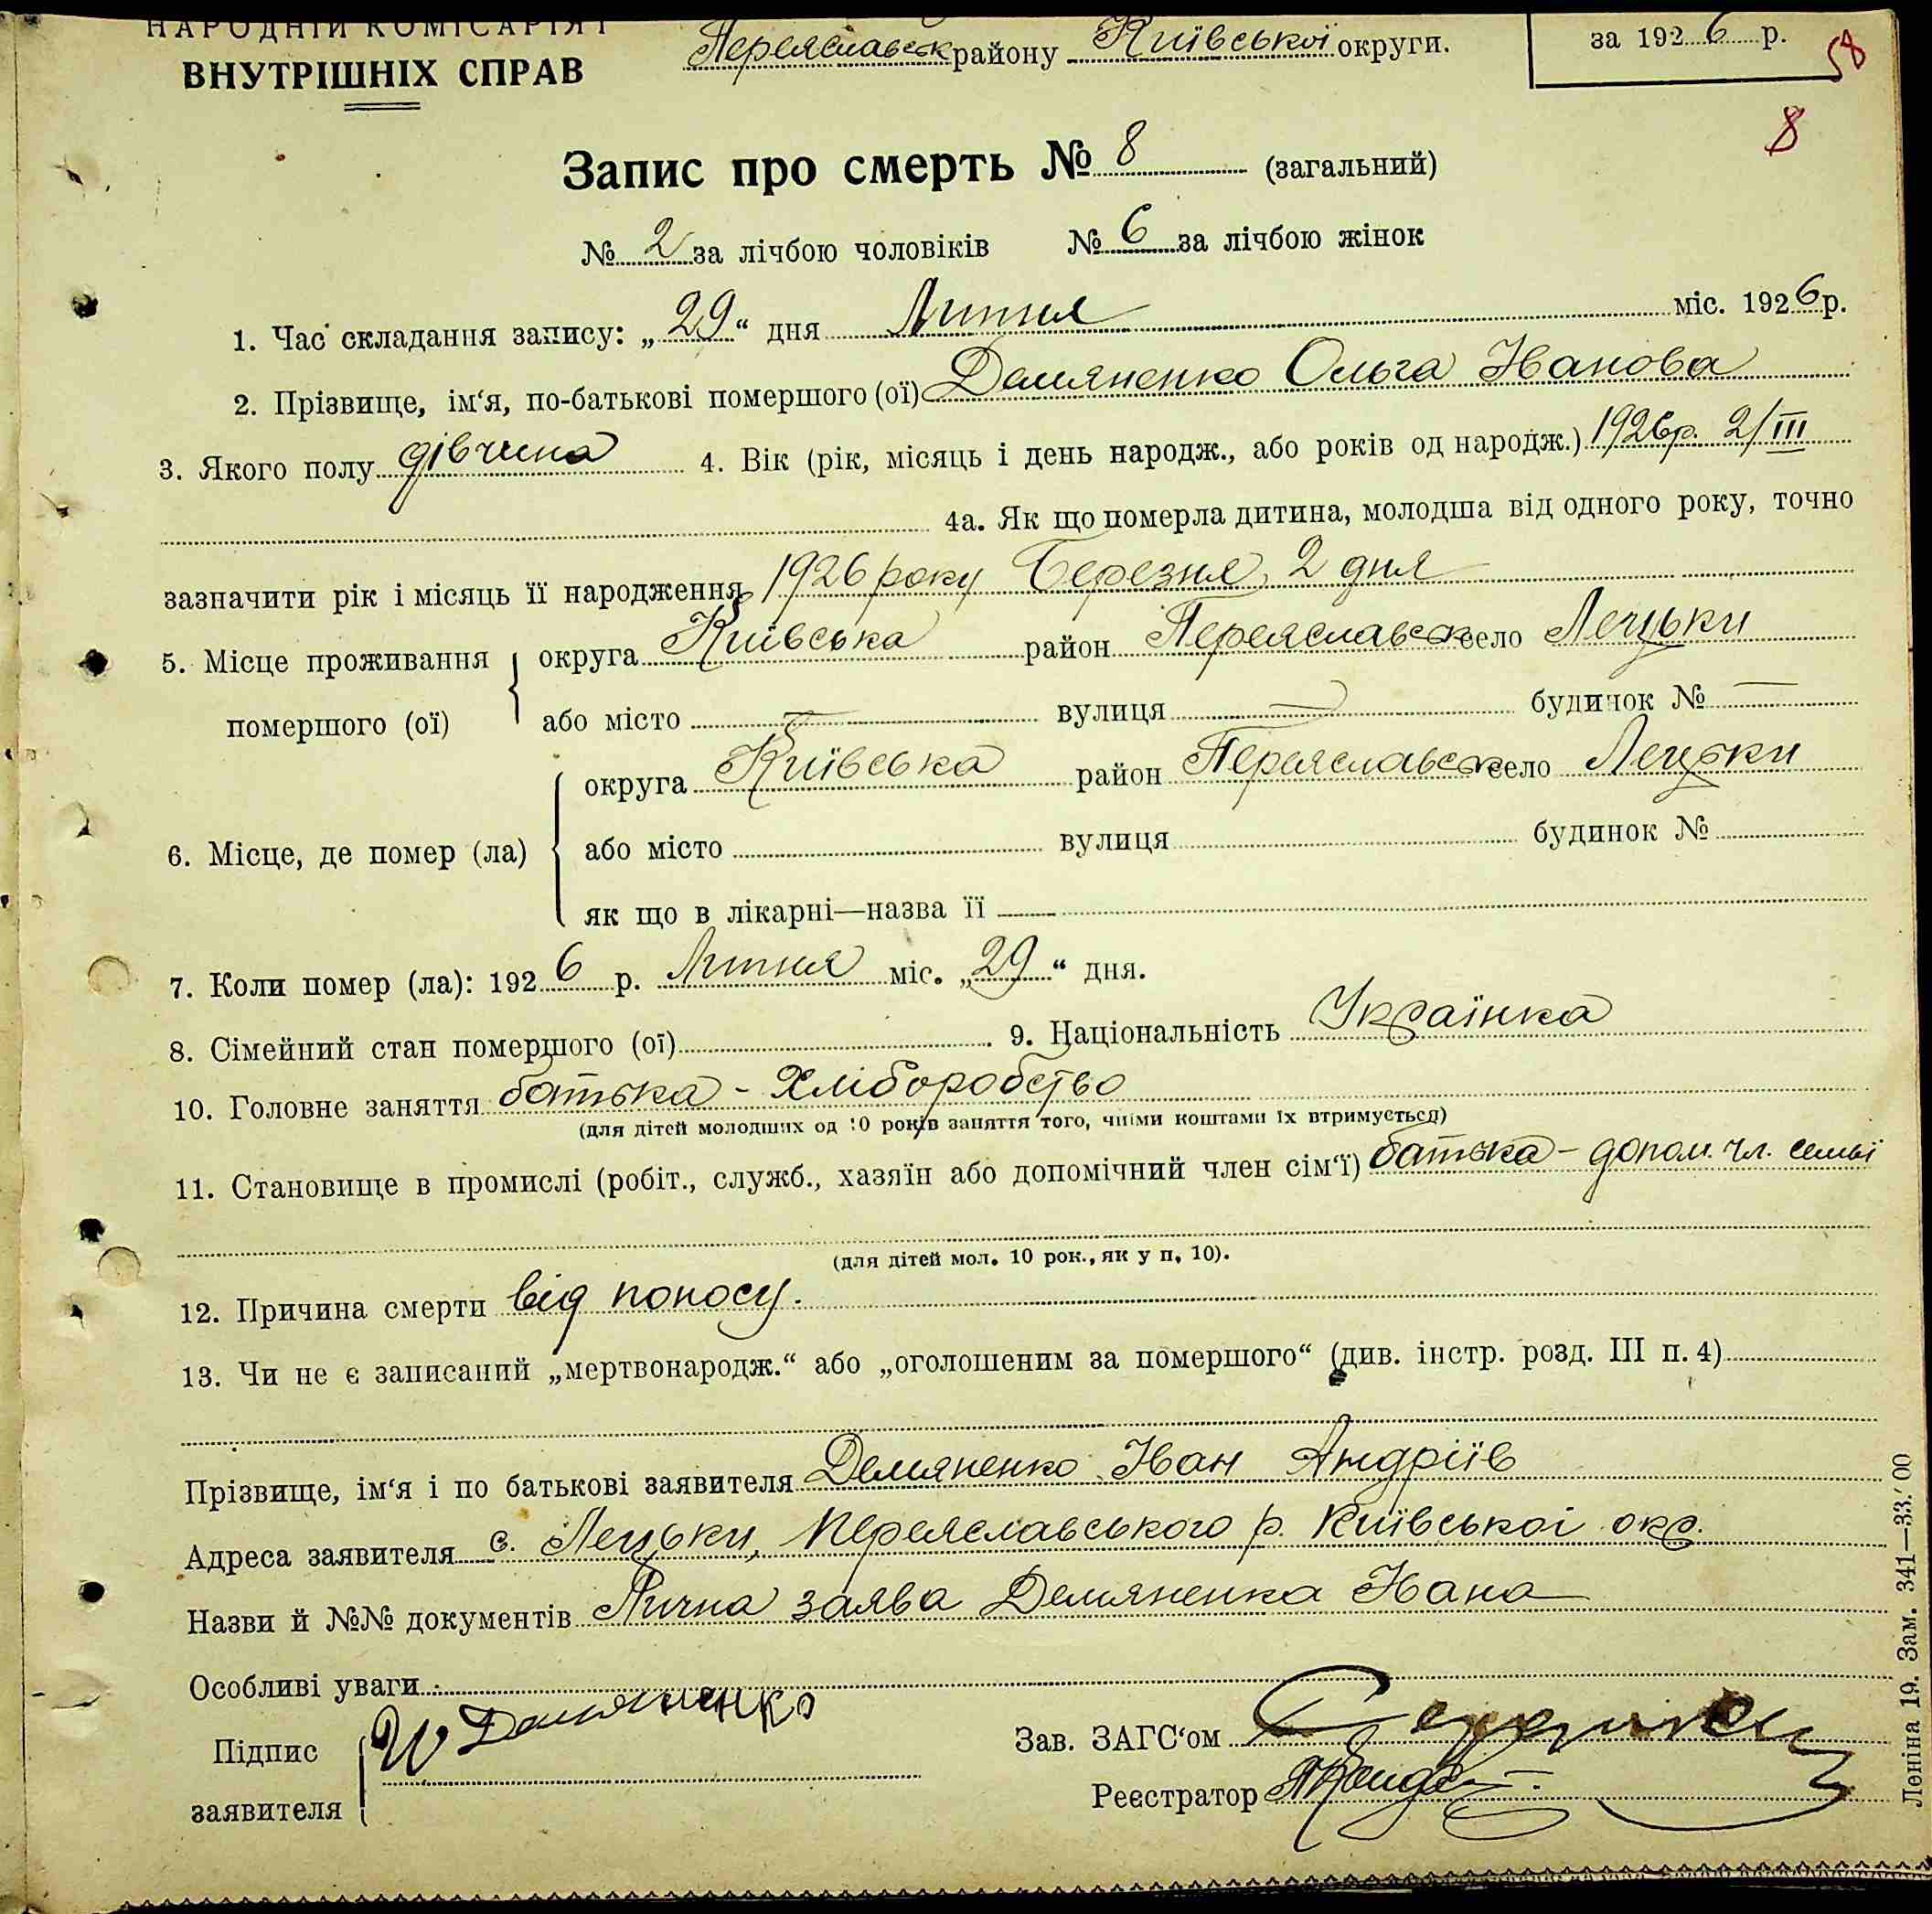 НАРОДНІЙ КОМІСАРІЯТ
ВНУТРІШНІХ СПРАВ
Переяславськ району Київської округи.
за 1926 р.
58
8
Запис про смерть № 8 (загальний)
№ 2 за лічбою чоловіків № 6 за лічбою жінок
1. Час складання запису: „29“ дня Липня міс. 1926 р.
2. Прізвище, ім‘я, по-батькові помершого (ої) Демяненко Ольга Іванова
3. Якого полу дівчина 4. Вік (рік, місяць і день народж., або років од народж.) 1926р. 2/III
4а. Як що померла дитина, молодша від одного року, точно
зазначити рік і місяць її народження 1926 року Березня, 2 дня
5. Місце проживання округа Київська район Переяславськ село Лецьки
помершого (ої) або місто — вулиця — будинок № —
округа Київська район Переяславськ село Лецьки
6. Місце, де помер (ла) або місто вулиця будинок №
як що в лікарні—назва її —
7. Коли помер (ла): 1926 р. Липня міс. „29“ дня.
8. Сімейний стан помершого (ої) . 9. Національність Українка
10. Головне заняття батька - Хліборобство
(для дітей молодших од 10 років заняття того, чиїми коштами їх втримується)
11. Становище в промислі (робіт., служб., хазяїн або допомічний член сім‘ї) батька - допом. чл. семьї
(для дітей мол. 10 рок., як у п. 10).
12. Причина смерти від поносу.
13. Чи не є записаний „мертвонародж.“ або „оголошеним за помершого“ (див. інстр. розд. III п. 4)
Прізвище, ім‘я і по батькові заявителя Демяненко Іван Андріїв
Адреса заявителя с. Лецьки, Переяславського р. Київської окр.
Назви й №№ документів Лична заява Демяненка Івана
Особливі уваги
Підпис
заявителя
И Демяненко
Зав. ЗАГС‘ом
Реєстратор
Леніна 19. Зам. 341—33.000